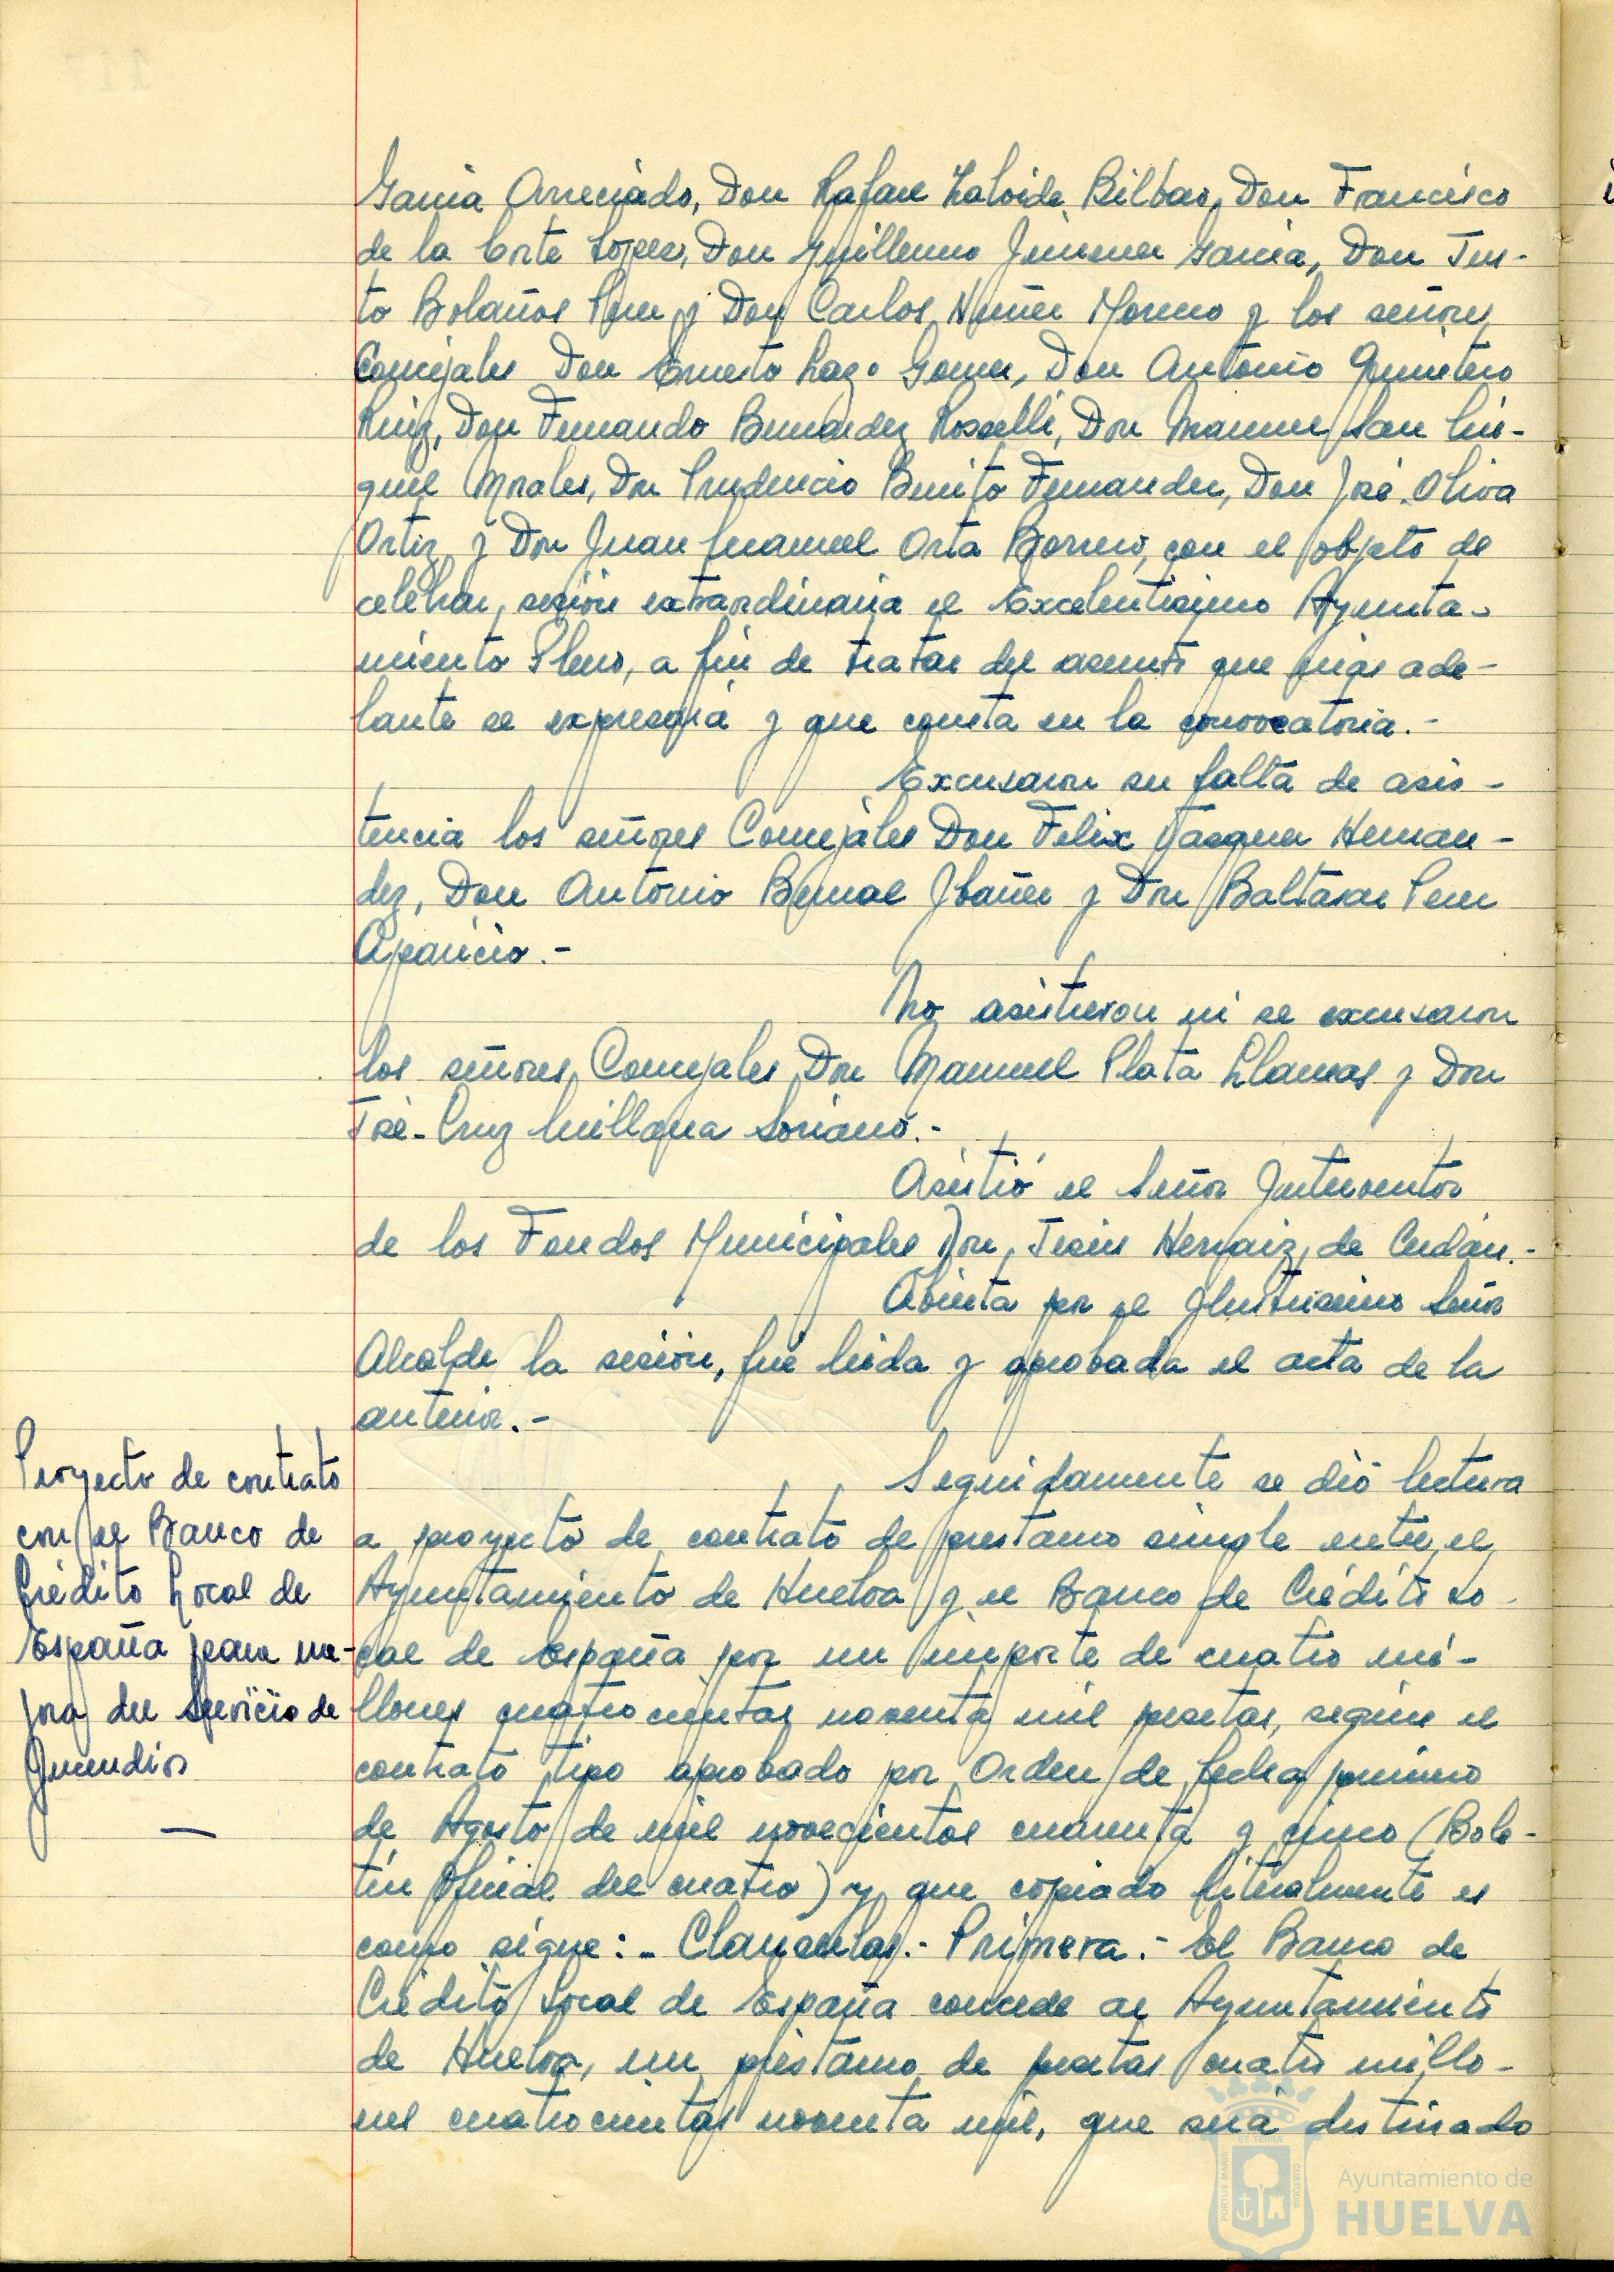 Garcia Arreciado, Don Rafael Zalvide Bilbao, Don Francisco
de la Corte Lopez, Don Guillermo Jimenez Garcia, Don Jus-
to Bolaños Perez y Don Carlos Nuñez Moreno y los señores
Concejales Don Ernesto Lazo Gomez, Don Antonio Quintero
Ruiz, Don Fernando Bermudez Rosselli, Don Manuel San Mi-
guel Morales, Don Prudencio Benito Fernandez, Don José Oliva
Ortiz y Don Juan Manuel Orta Borrero, con el objeto de
celebrar sesión extraordinaria el Excelentisimo Ayunta-
miento Pleno, a fin de tratar del asunto que más ade-
lante se expresará y que consta en la convocatoria.-
Excusaron su falta de asis-
tencia los señores Concejales Don Felix Vazquez Hernan-
dez, Don Antonio Bernal Ibañez y Don Baltasar Perez
Aparicio.-
No asistieron ni se excusaron
los señores Concejales Don Manuel Plata Llamas y Don
José-Cruz Millana Soriano.-
Asistió el Señor Interventor
de los Fondos Municipales Don Jesús Hernaiz de
Abierta por el Ilustrisimo Señor
Alcalde la sesión, fué leida y aprobada el acta de la
anterior.-
Proyecto de contrato
con el Banco de
Crédito Local de
España para me-
jora del Servicio de
Incendios
Seguidamente se dió lectura
a proyecto de contrato de prestamo simple entre el
Ayuntamiento de Huelva y el Banco de Crédito Lo-
cal de España por un importe de cuatro mi-
llones cuatrocientas noventa mil pesetas, según el
contrato tipo aprobado por Orden de fecha primero
de Agosto de mil novecientos cuarenta y cinco (Bole-
tin Oficial del cuatro) y que copiado literalmente es
como sigue:- Clausulas.- Primera.- El Banco de
Crédito Local de España concede al Ayuntamiento
de Huelva, un préstamo de pesetas cuatro millo-
nes cuatrocientas noventa mil, que será destinado
PORTUS MARIS
CUSTODIA
Ayuntamiento de
HUELVA